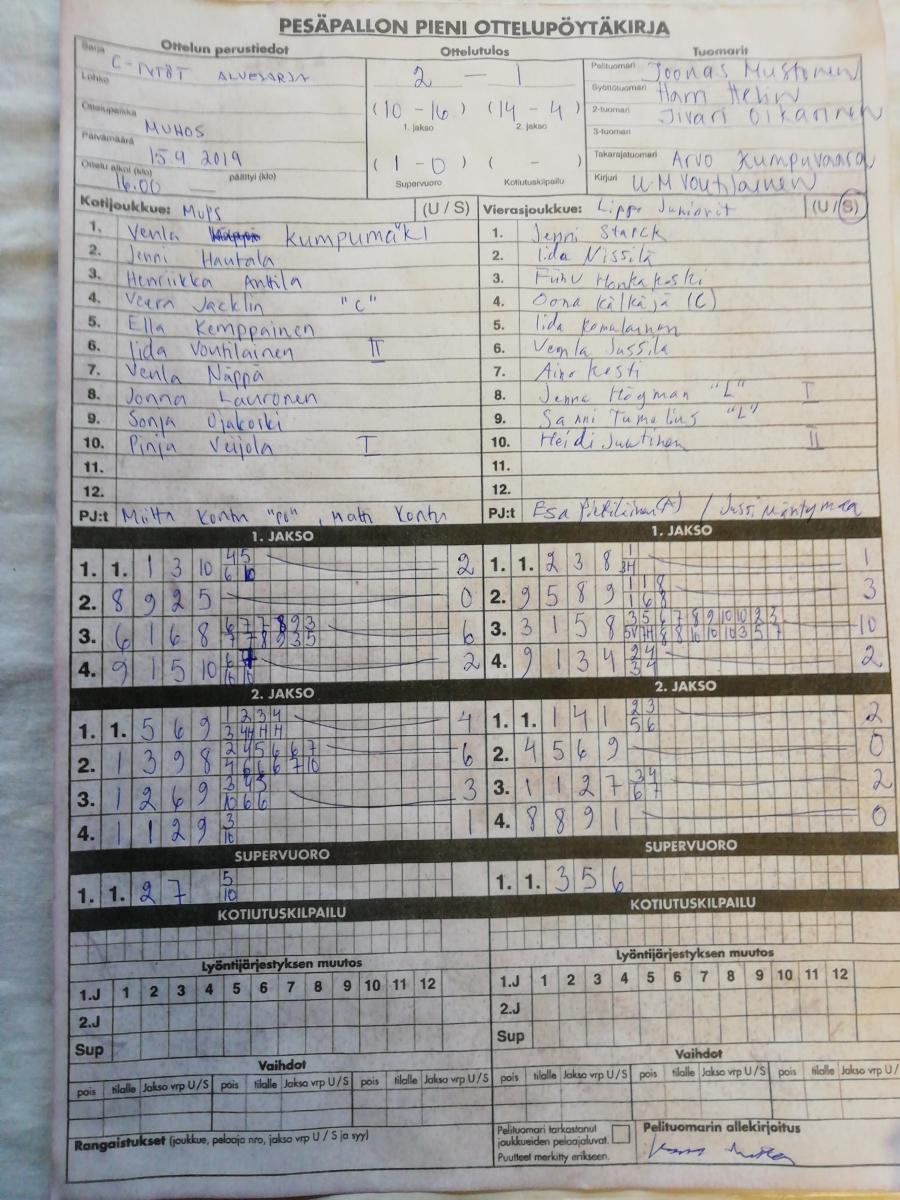 PESÄPALLON PIENI OTTELUPÖYTÄKIRJA
Ottelun perustiedot
Sarja C-TYTÖT ALUESARJA
Lohko
Ottelupaikka MUHOS
Päivämäärä 15.9 2019
Ottelu alkoi (klo) 16.00 päättyi (klo)
Ottelutulos
2 - 1
(10 - 16) (14 - 4)
1. jakso 2. jakso
(1 - 0) ( - )
Supervuoro Kotiutuskilpailu
Tuomarit
Pelituomari Joonas Mustonen
Syöttötuomari Harri Helin
2-tuomari Iivari Oikarinen
3-tuomari
Takarajatuomari Arvo Kumpuvaara
Kirjuri U-M Voutilainen
Kotijoukkue: MuPS (U / S)
1. Venla Kumpumäki
2. Jenni Hautala
3. Henriikka Anttila
4. Veera Jacklin "C"
5. Ella Kemppainen
6. Iida Voutilainen II
7. Venla Näppä
8. Jonna Lauronen
9. Sonja Ojakoski
10. Pinja Veijola I
11.
12.
PJ:t Miitta Kontu "PJ", Matti Kontu
Vierasjoukkue: Lippo Juniorit (U / S)
1. Jenni Starck
2. Iida Nissilä
3. Honkakoski
4. Oona Kälkäjä (C)
5. Iida Komulainen
6. Venla Jussila
7. Aino Kesti
8. Jenna Högman "L" I
9. Sanni Tumelius "L"
10. Heidi Juutinen II
11.
12.
PJ:t Esa / Jussi Mäntymaa
1. JAKSO
1. 1. 1 3 10 4 5 2
6 10
2. 8 9 2 5 0
3. 6 1 6 8 6 7 7 8 9 3 6
7 7 8 9 3 5
4. 9 1 5 10 2
2. JAKSO
1. 1. 5 6 9 1 2 3 4 4
3 4H H H
2. 1 3 9 8 2 4 5 6 6 7 6
4 6 6 6 7 10
3. 1 2 6 9 3 4 5 3
10 6 6
4. 1 1 2 9 3 1
10
SUPERVUORO
1. 1. 2 7 5
10
KOTIUTUSKILPAILU
1. JAKSO
1. 1. 2 3 8 1 1
3H
2. 9 5 8 9 1 1 8 3
1 6 8
3. 3 1 5 8 3 5 6 7 8 9 10 10 2 3 10
5V 7H 8 8 10 10 10 3 5 7
4. 9 1 3 4 2 4 2
3 4
2. JAKSO
1. 1. 1 4 1 2 3 2
5 6
2. 4 5 6 9 0
3. 1 1 2 7 3 4 2
6 7
4. 8 8 9 1 0
SUPERVUORO
1. 1. 3 5 6
KOTIUTUSKILPAILU
Lyöntijärjestyksen muutos
1.J 1 2 3 4 5 6 7 8 9 10 11 12
2.J
Sup
Vaihdot
pois tilalle Jakso vrp U / S pois tilalle Jakso vrp U / S pois tilalle Jakso vrp U / S
Lyöntijärjestyksen muutos
1.J 1 2 3 4 5 6 7 8 9 10 11 12
2.J
Sup
Vaihdot
pois tilalle Jakso vrp U / S pois tilalle Jakso vrp U / S pois tilalle Jakso vrp U /
Rangaistukset (joukkue, pelaaja nro, jakso vrp U / S ja syy)
Pelituomari tarkastanut
joukkueiden pelaajaluvat.
Puutteet merkitty erikseen.
Pelituomarin allekirjoitus